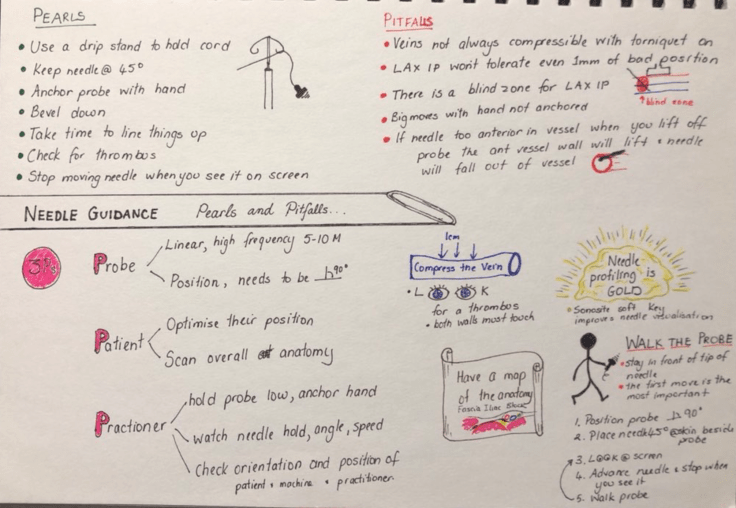 PEARLS
• Use a drip stand to hold cord
• Keep needle @ 45°
• Anchor probe with hand
• Bevel down
• Take time to line things up
• Check for thrombus
• Stop moving needle when you see it on screen
PITFALLS
• Veins not always compressible with torniquet on
• LAX IP won't tolerate even 1mm of bad position
• There is a blind zone for LAX IP
↑ blind zone
• Big moves with hand not anchored
• If needle too anterior in vessel when you lift off
probe the ant vessel wall will lift & needle
will fall out of vessel
NEEDLE GUIDANCE Pearls and Pitfalls...
3P's
Probe
Linear, high frequency 5-10 M
Position, needs to be 90°
Patient
Optimise their position
Scan overall anatomy
Practioner
hold probe low, anchor hand
watch needle hold, angle, speed
Check orientation and position of
patient • machine • practitioner
1cm
Compress the Vein
• L K
for a thrombus
• both walls must touch
Have a map
of the anatomy
Fascia Iliac Block
Needle
profiling is
GOLD
Sonosite soft key
improves needle visualisation
WALK THE PROBE
• stay in front of tip of
needle
• the first move is the
most important
1. Position probe 90°
2. Place needle 45° @ skin beside
probe
3. LOOK @ screen
4. Advance needle & stop when
you see it
5. Walk probe